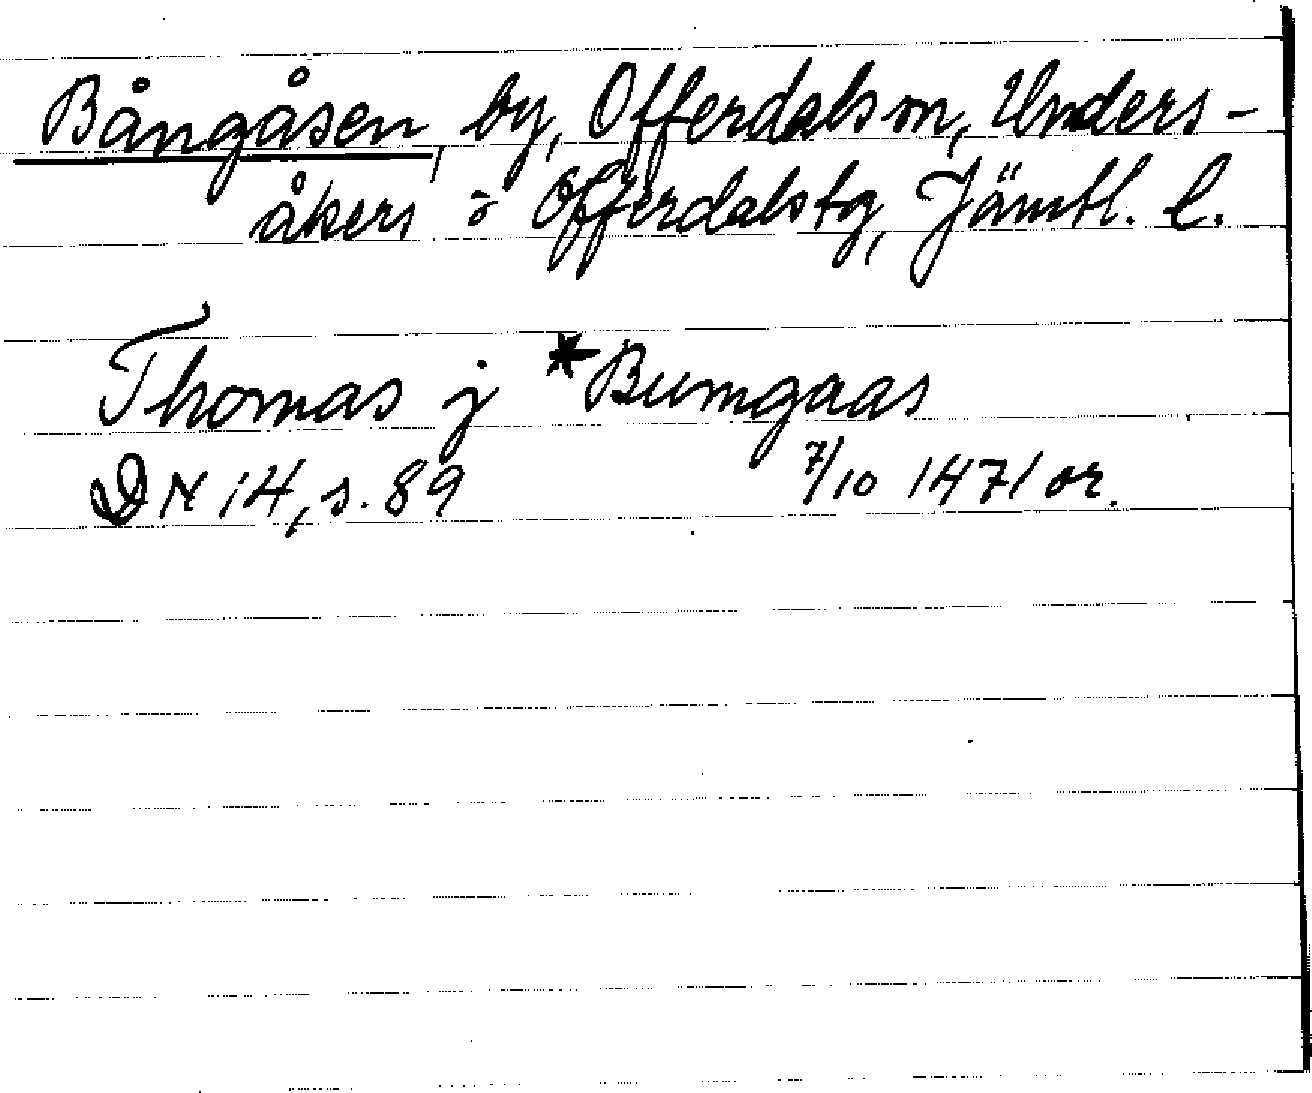 Bångåsen, by, Offerdals sn, Unders-
åkers o Offerdals tg, Jämtl. l.
Thomas j *Bumgaas
DN 14, s. 89 7/10 1471 or.